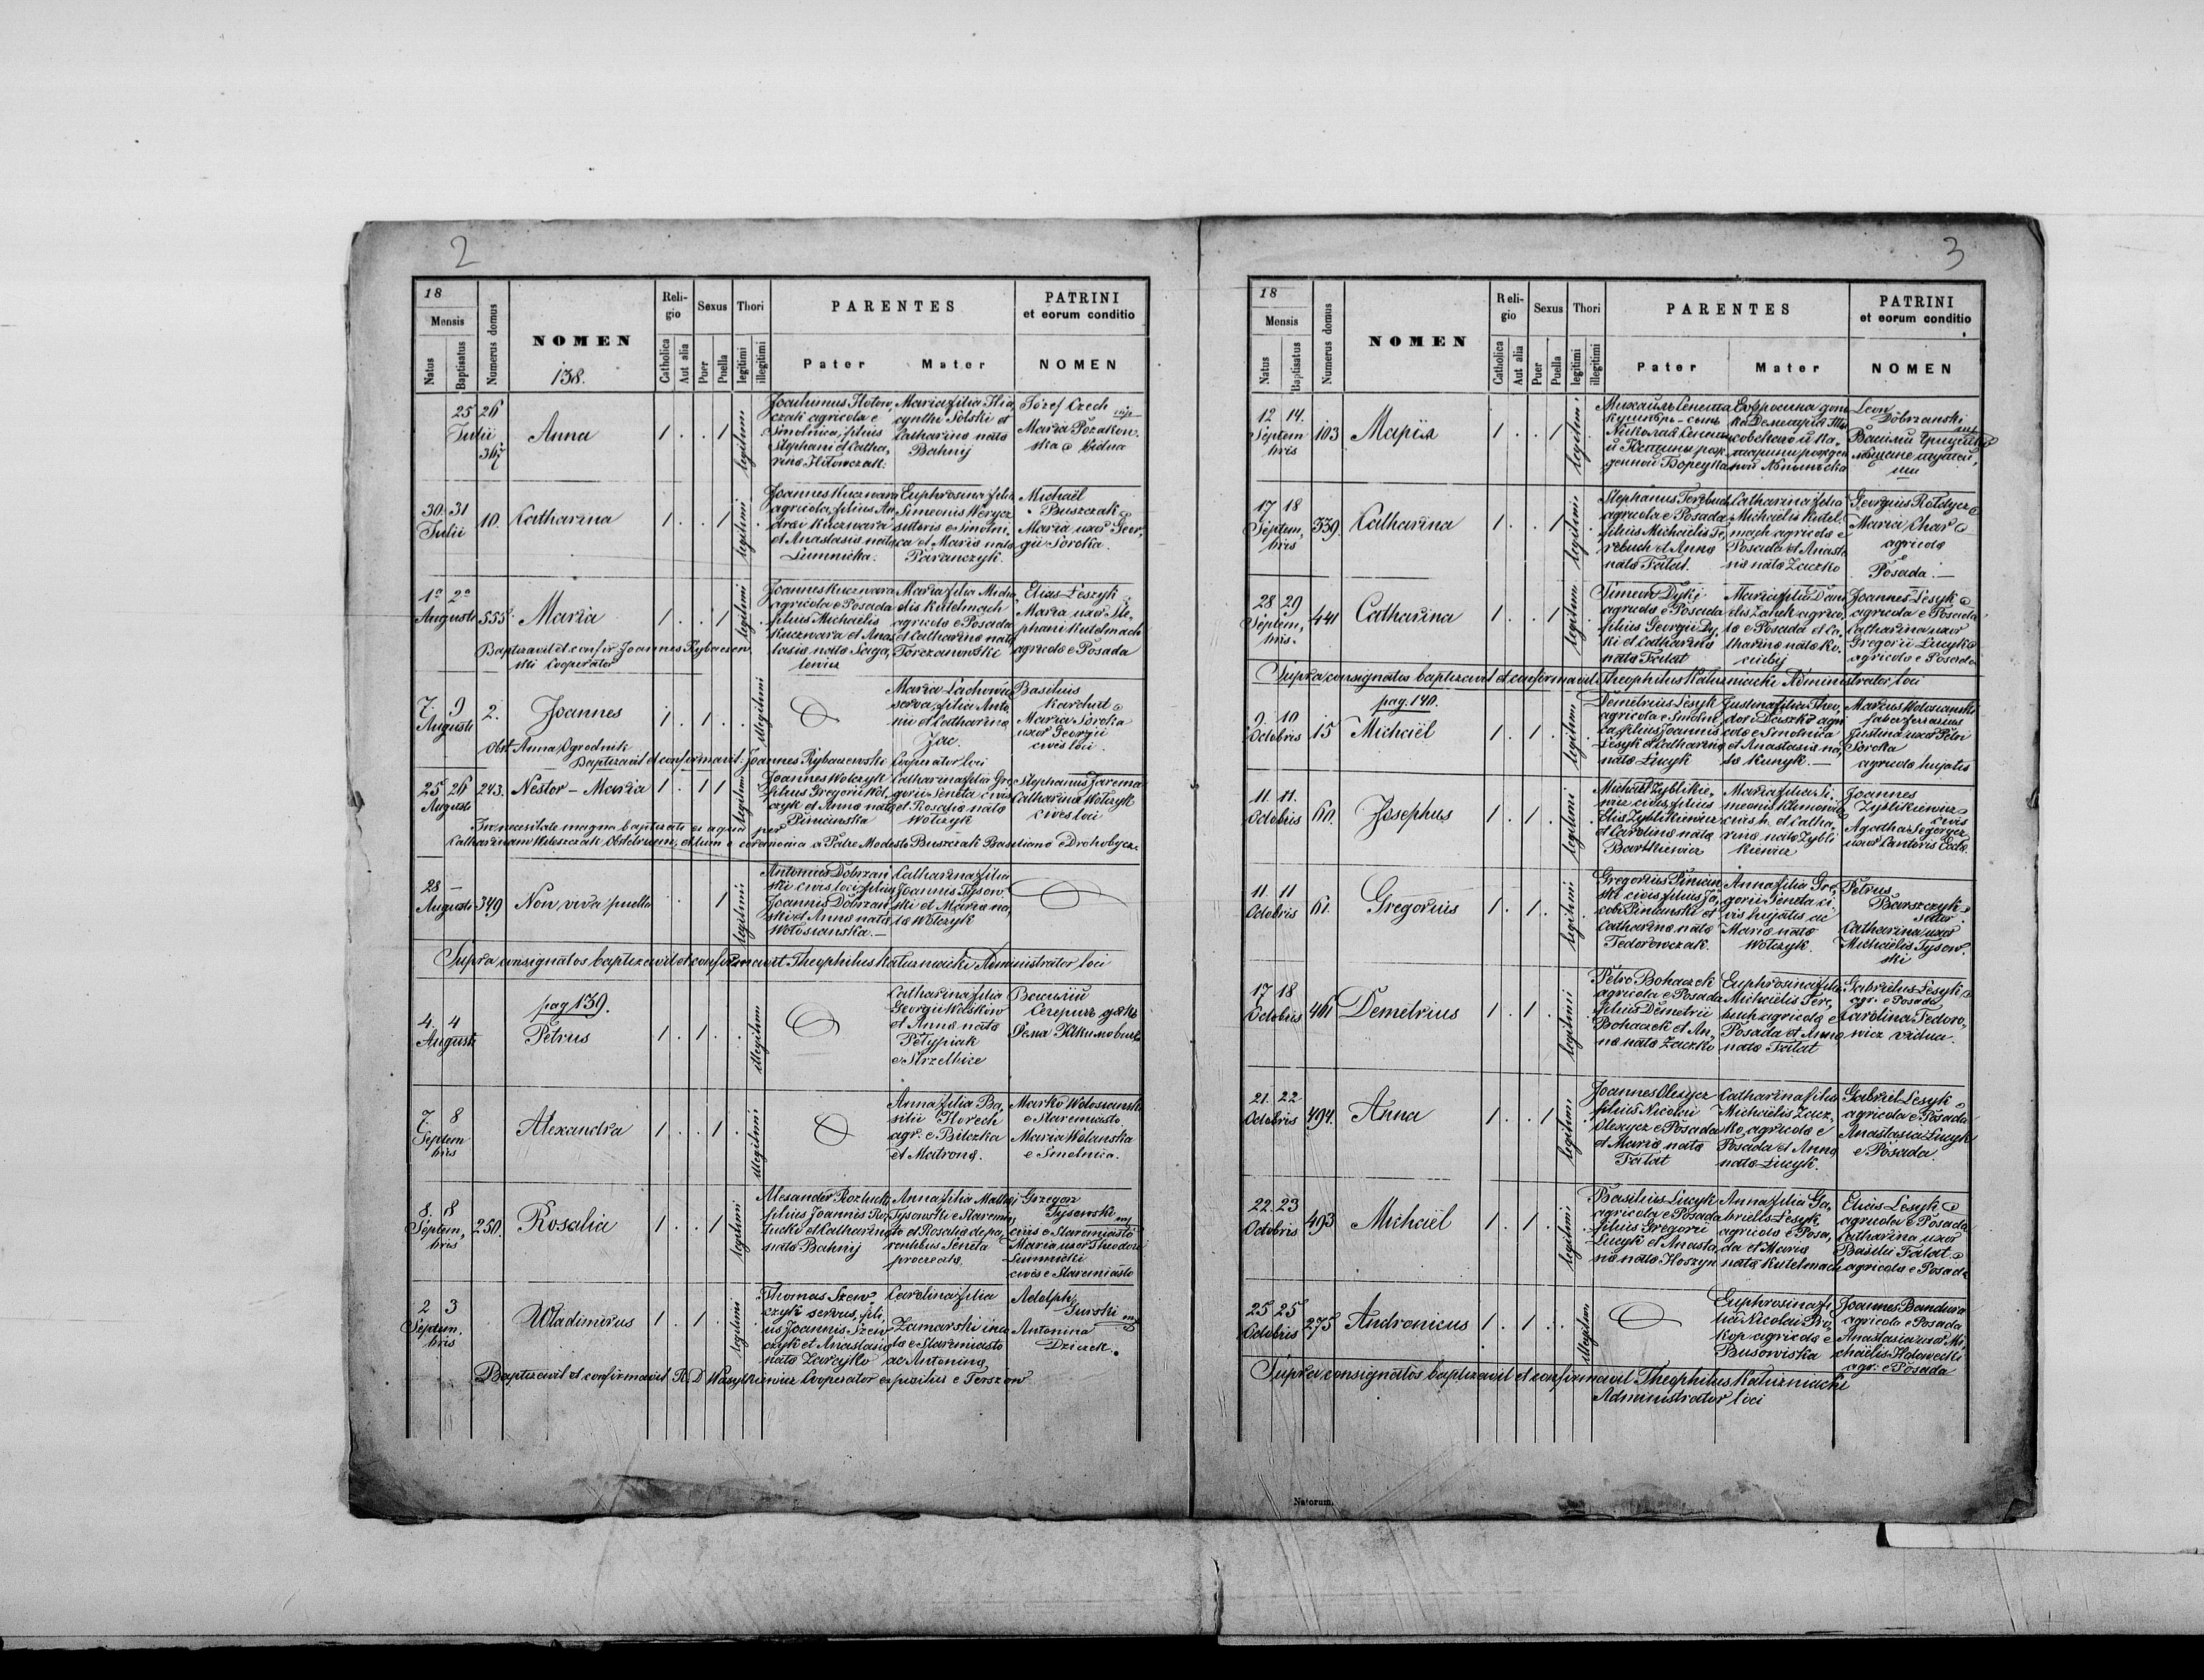 2
18
Mensis
Natus
Baptisatus
Numerus domus
NOMEN
138.
Religio
Catholica
Aut alia
Sexus
Puer
Puella
Thori
legitimi
illegitimi
PARENTES
Pater
Mater
PATRINI
et eorum conditio
NOMEN
25 26
Julii
367
Anna
1 . . 1
legitimi
agricola e
Smolnica, filius
Stephani et Catha,
Maria filia Hia,
cynthi Solski et
Catharinæ nata
Bahnij
Józef Czech
Maria Pozakow,
ska vidua
30. 31
Julii
10.
Catharina
1 . . 1
legitimi
Joannes Kuczwara
agricola, filius An,
dreæ Kuczwara
et Anastasiæ nata
Lumnicka.
Euphrosina filia
Simeonis Werycz
sutoris e Smolni,
ca et Mariæ nata
Paranczyk.
Michaël
Buszczak
Maria uxor Geor,
gii Soroka.
1º 2º
Augusti
555
Maria
1 . . 1
legitimi
Joannes Kuczwara
agricola e Posada
filius Michaëlis
Kuczwara et Anas,
tasiæ nata Saga,
lewicz
Maria filia Micha,
ëlis Kutelmach
agricola e Posada
et Catharinæ nata
Torczanowski
Elias Leszyk
Maria uxor Ste,
phani Kutelmach
agricola e Posada
Baptizavit et confir. Joannes Rybaczew,
ski Cooperator
7. 9
Augusti
2.
Joannes
1 . 1 .
illegitimi
Maria Lachowicz
serva, filia Anto,
nii et Catharinæ
Jac.
Basilius
Karchut
Maria Soroka
uxor Georgii
cives loci.
Obst. Anna Ogrodnik
Baptizavit et confirmavit Joannes Rybaczewski Cooperator loci
25 26
Augusti
243.
Nestor - Maria
1 . 1 1
legitimi
Joannes Wolczyk
filius Gregorii Wol,
czyk et Anna nata
Piniańska
Catharina filia Gre,
gorii Seneta civis
et Rosalia nata
Wolczyk
Stephanus Jarema
Catharina Wolczyk
cives loci
In necesitate magna baptizati ex aqua per
Catharinam Woleszczak Obstetricem, et tum e ceremonia a Patre Modesto Buszczak Basiliano e Drohobycz.
28 -
Augusti
349
Non viva puella
1
legitimi
Antonius Dobrzan
ski civis loci filius
Joannis Dobrzan
ski et Anna nata
Wolosianska.
Catharina filia
Joannis Tysow
ski et Maria na,
ta Wolczyk
Supra consignatos baptizavit et confirmavit Theophilus Kaluzniacki Administrator loci
pag 139.
4. 4
Augusti
Petrus
1 . 1 .
illegitimi
Catharina filia
Georgii Wolskow
et Anna nata
Petypiak
e Strzelbice
Василій
7. 8
Septem
bris
Alexandra
1 . . 1 .
illegitimi
Anna filia Ba,
silii Horech
agr. e Bilczka
et Matrona.
Marko Wolosianski
e Staremiasto
Maria Wolanska
e Smolnica.
8. 8
Septem,
bris
250.
Rosalia
1 . . 1
legitimi
Alexander Rozluck
filius Joannis Ro,
zlucki et Catharina
nata Bahnij
Anna filia Mathei
Tysowski e Staremias
to et Rosalia de pa,
rentibus Seneta
procreata,
Grzegorz
Tysowski
civis e Staremiasto
Maria uxor Theodori
Lumnicki
cives e Staremiasto
2 3
Septem,
bris
Wladimirus
1 . 1 .
legitimi
Thomas Szew
czyk servus, fili,
us Joannis Szew
czyk et Anastasia
nata Zarajko
Carolina filia
Zamarski inco
la e Staremiasto
ac Antonina,
Adolph
Gurski
Antonina
Dziczek.
Baptizavit et confirmavit R. D. Wasylkiewicz Cooperator expositus e Terszow
3
18
Mensis
Natus
Baptisatus
Numerus domus
NOMEN
Religio
Catholica
Aut alia
Sexus
Puer
Puella
Thori
legitimi
illegitimi
PARENTES
Pater
Mater
PATRINI
et eorum conditio
NOMEN
12 14.
Septem
bris
103
Марія
1 . . 1
legitimi
Михаилъ Сенета
Евфросина доч
Leon
Dobrzanski
Василій
17 18
Septem,
bris
339.
Catharina
1 . . 1
legitimi
Stephanus Terebuch
agricola e Posada
filius Michaëlis Te,
rebuch et Anna
nata Fatat.
Catharina filia
Michaëlis Kutel,
mach agricola e
Posada et Anasta
na nata Zaczko
Georgius Rotdycz
Maria Char
agricola
Posada.
28 29
Septem,
bris.
441
Catharina
1 . . 1
legitimi
Simeon Dyki
agricola e Posada
filius Georgii Dy,
ki et Catharina
nata Fatat
Maria filia Dani
elis Zaneh agrico,
la e Posada et Ca,
tharina nata Ko,
cinbij
Joannes Lesyk
agricola e Posada
Catharina uxor
Gregorii Lucyk
agricola e Posada
Supra consignatos baptizavit et confirmavit Theophilus Kaluzniacki Administrator loci
pag. 140.
9. 10
Octobris
15
Michaël
1 . 1 .
legitimi
Demetrius Lesyk
agricola e Smolni
ca, filius Joannis
Lesyk et Catharina
nata Lucyk
Justina filia Theo,
dori Daszko agri
cola e Smolnica
et Anastasia na,
ta Kunyk.
Marcus Wolosianski
faber ferrarius
Justina uxor Petri
Soroka
agricola hujatis
11. 11.
Octobris
60.
Josephus
1 . 1 .
legitimi
Michaël Zyblikie,
wicz civis filius
Eliæ Zyblikiewicz
et Carolina nata
Bartkiewicz
Maria filia Si,
meonis Klimowicz
civis h. et Catha,
rina nata Zybli
kiewicz
Joannes
Zyblikiewicz
civis
Agatha Segerycz
uxor Cantoris Eccle.
11. 11
Octobris
61.
Gregorius
1 . 1 .
legitimi
Gregorius Pinian
ski civis filius Ja,
cobi Pinianski et
Catharina nata
Fedorowczak.
Anna filia Gre,
gorii Seneta ci,
vis hujatis ac
Maria nata
Wolczyk.
Petrus
Barszczyk
Catharina uxor
Michaëlis Tysow,
ski
17 18
Octobris
461
Demetrius
1 . 1 .
legitimi
Petro Bohaczek
agricola e Posada
filius Demetrii
Bohaczek et An,
na nata Zaczko
Euphrosina filia
Michaëlis Tere,
buch agricola e
Posada et Anna
nata Fatat
Gabrielus Lesyk
agr. e Posada
Carolina Fedoro,
wicz vidua.
21. 22
Octobris
494.
Anna
1 . . 1
legitimi
Joannes Olesycz
filius Nicolai
Olesycz e Posada
et Maria nata
Fatat
Catharina filia
Michaëlis Zacz,
ko, agricola e
Posada et Anna
nata Lucyk.
Gabriel Lesyk
agricola e Posada
Anastasia Lucyk
e Posada.
22. 23
Octobris
493
Michaël
1 . 1 .
legitimi
Basilius Lucyk
agricola e Posada
filius Gregorii
Lucyk et Anasta,
na nata Hoszyn
Anna filia Ga,
brielis Lesyk
agricola e Posa,
da et Maria
nata Kutelmach
Elias Lesyk
agricola e Posada
Catharina uxor
Basilii Fatat
agricola e Posada
25 25
Octobris
275
Andronicus
1 . 1 .
illegitim
Euphrosina fi
lia Nicolai Pro,
kop agricola e
Busowiska
Joannes Bandura
agricola e Posada
Anastasia uxor Mi,
chaëlis Holowecki
agr. e Posada
Supra consignatos baptizavit et confirmavit Theophilus Kaluzniacki
Administrator loci
Natorum.